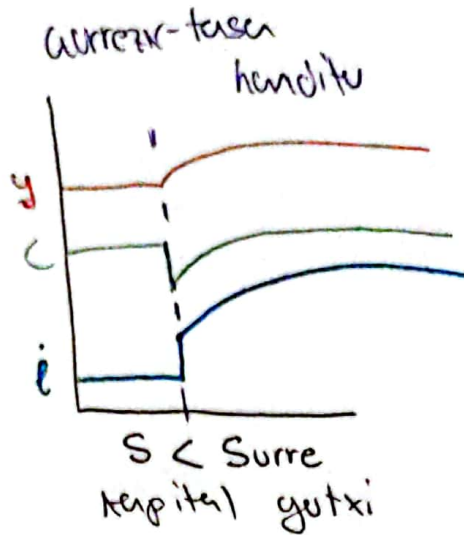 aurrezki-tasa
handitu
y
c
i
S < Surre
kapital gutxi